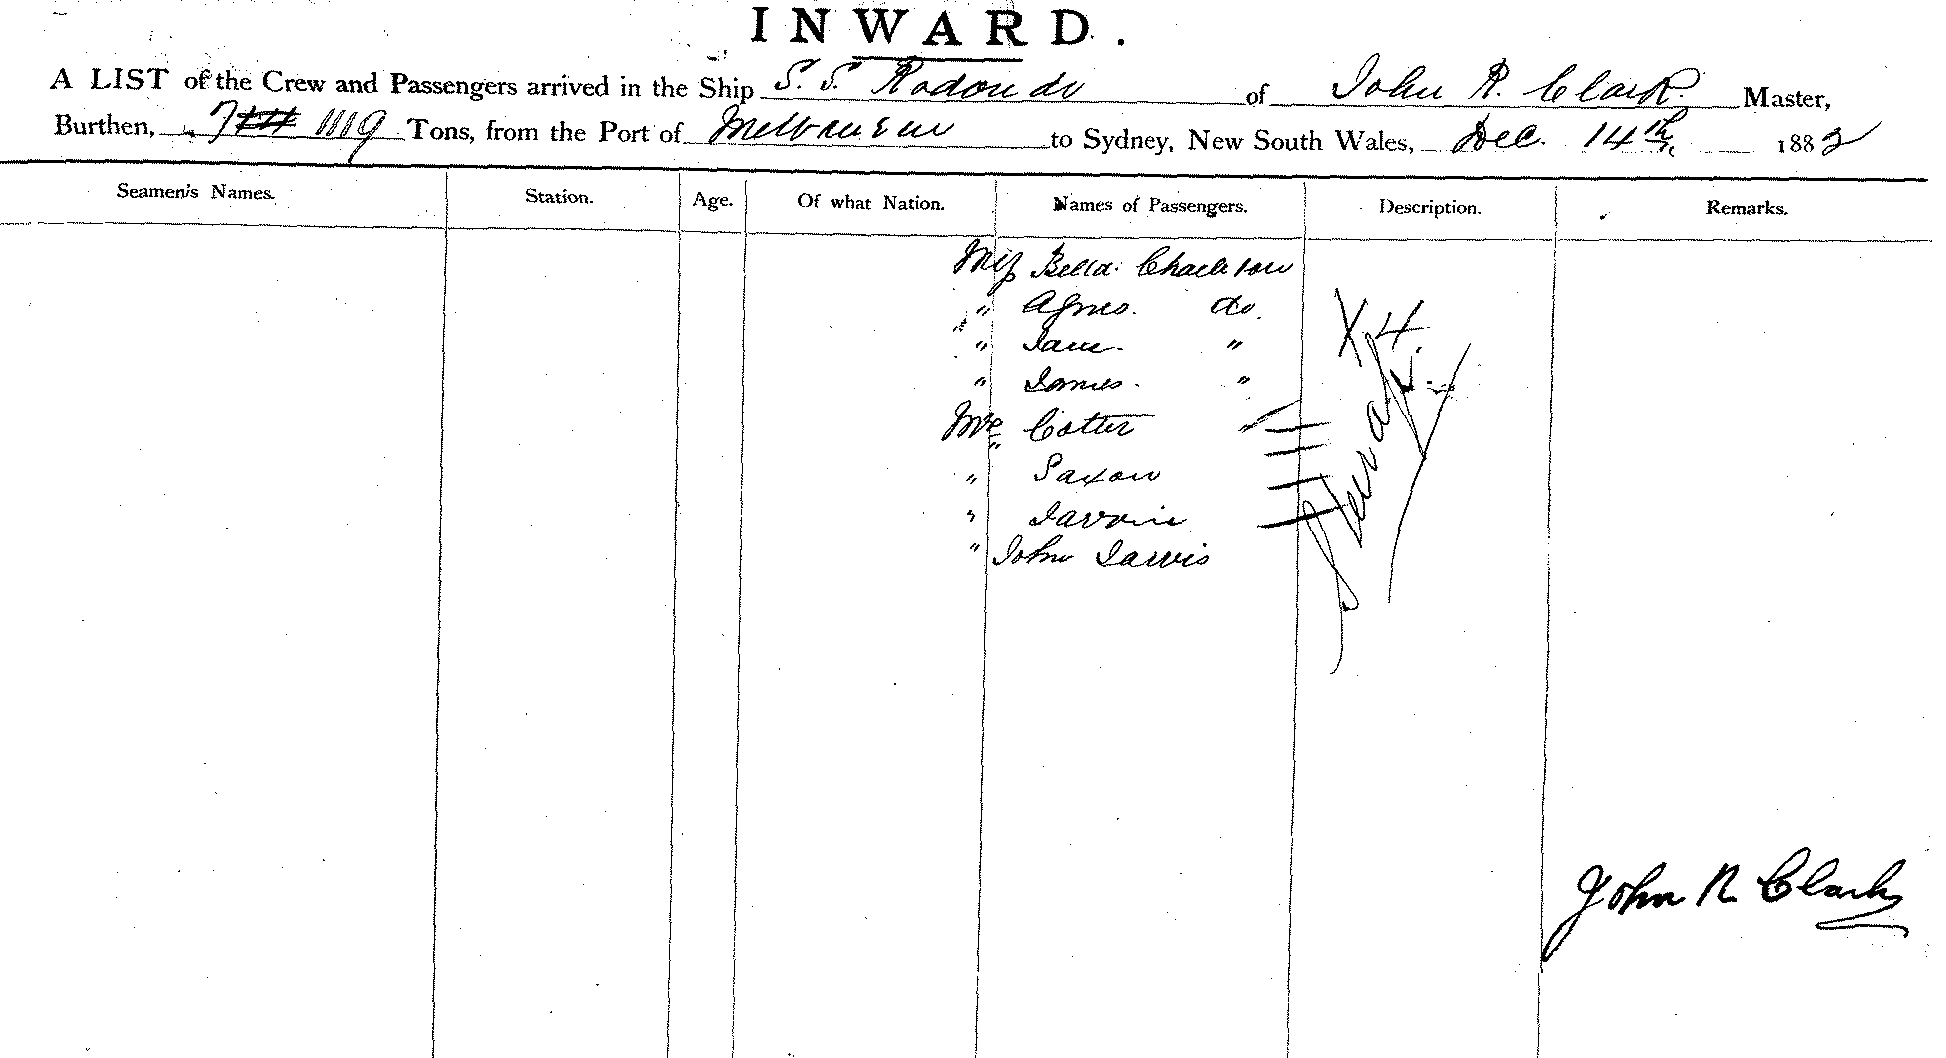 INWARD.
A LIST of the Crew and Passengers arrived in the Ship S. S. Rodondo of John R. Clark Master,
Burthen, 1119 Tons, from the Port of Melbourne to Sydney, New South Wales, Dec. 14th, 1882
Seamen's Names. Station. Age. Of what Nation. Names of Passengers. Description. Remarks.
Miss Bella Charleton
" Agnes. do.
" Jane. "
" James. "
Mr Cotter "
" Saxon
"
" John Jarvis
X 4.
John R Clark